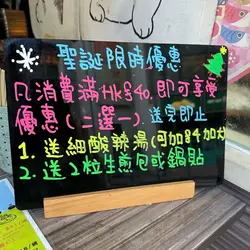 聖誕限時優惠
凡消費滿HK$40,即可享受
優惠(二選一).送完即止
1.送細酸辣湯(可加$4加大)
2.送2粒生煎包或鍋貼